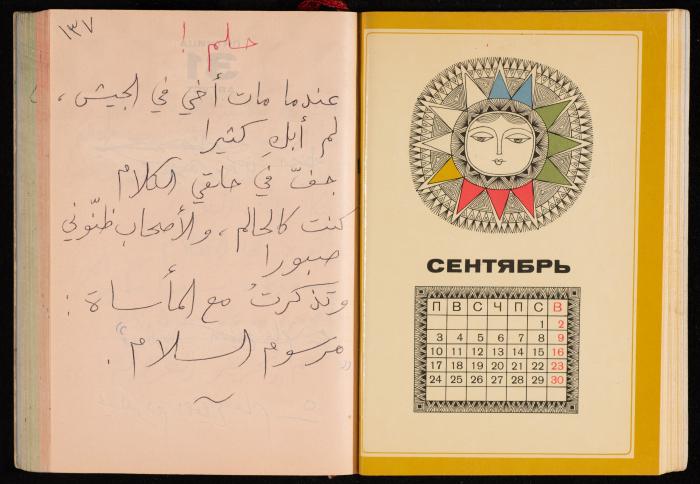 ١٣٧
حلم !
عندما مات أخي في الجيش ،
لم أبكِ كثيرا
جفّ في حلقي الكلام
كنت كالحالم ، والأصحاب ظنّوني
صبورا
وتذكرتُ مع المأساة :
" مرسوم السلام " .
31
СЕНТЯБРЬ
П В С Ч П С В
1 2
3 4 5 6 7 8 9
10 11 12 13 14 15 16
17 18 19 20 21 22 23
24 25 26 27 28 29 30